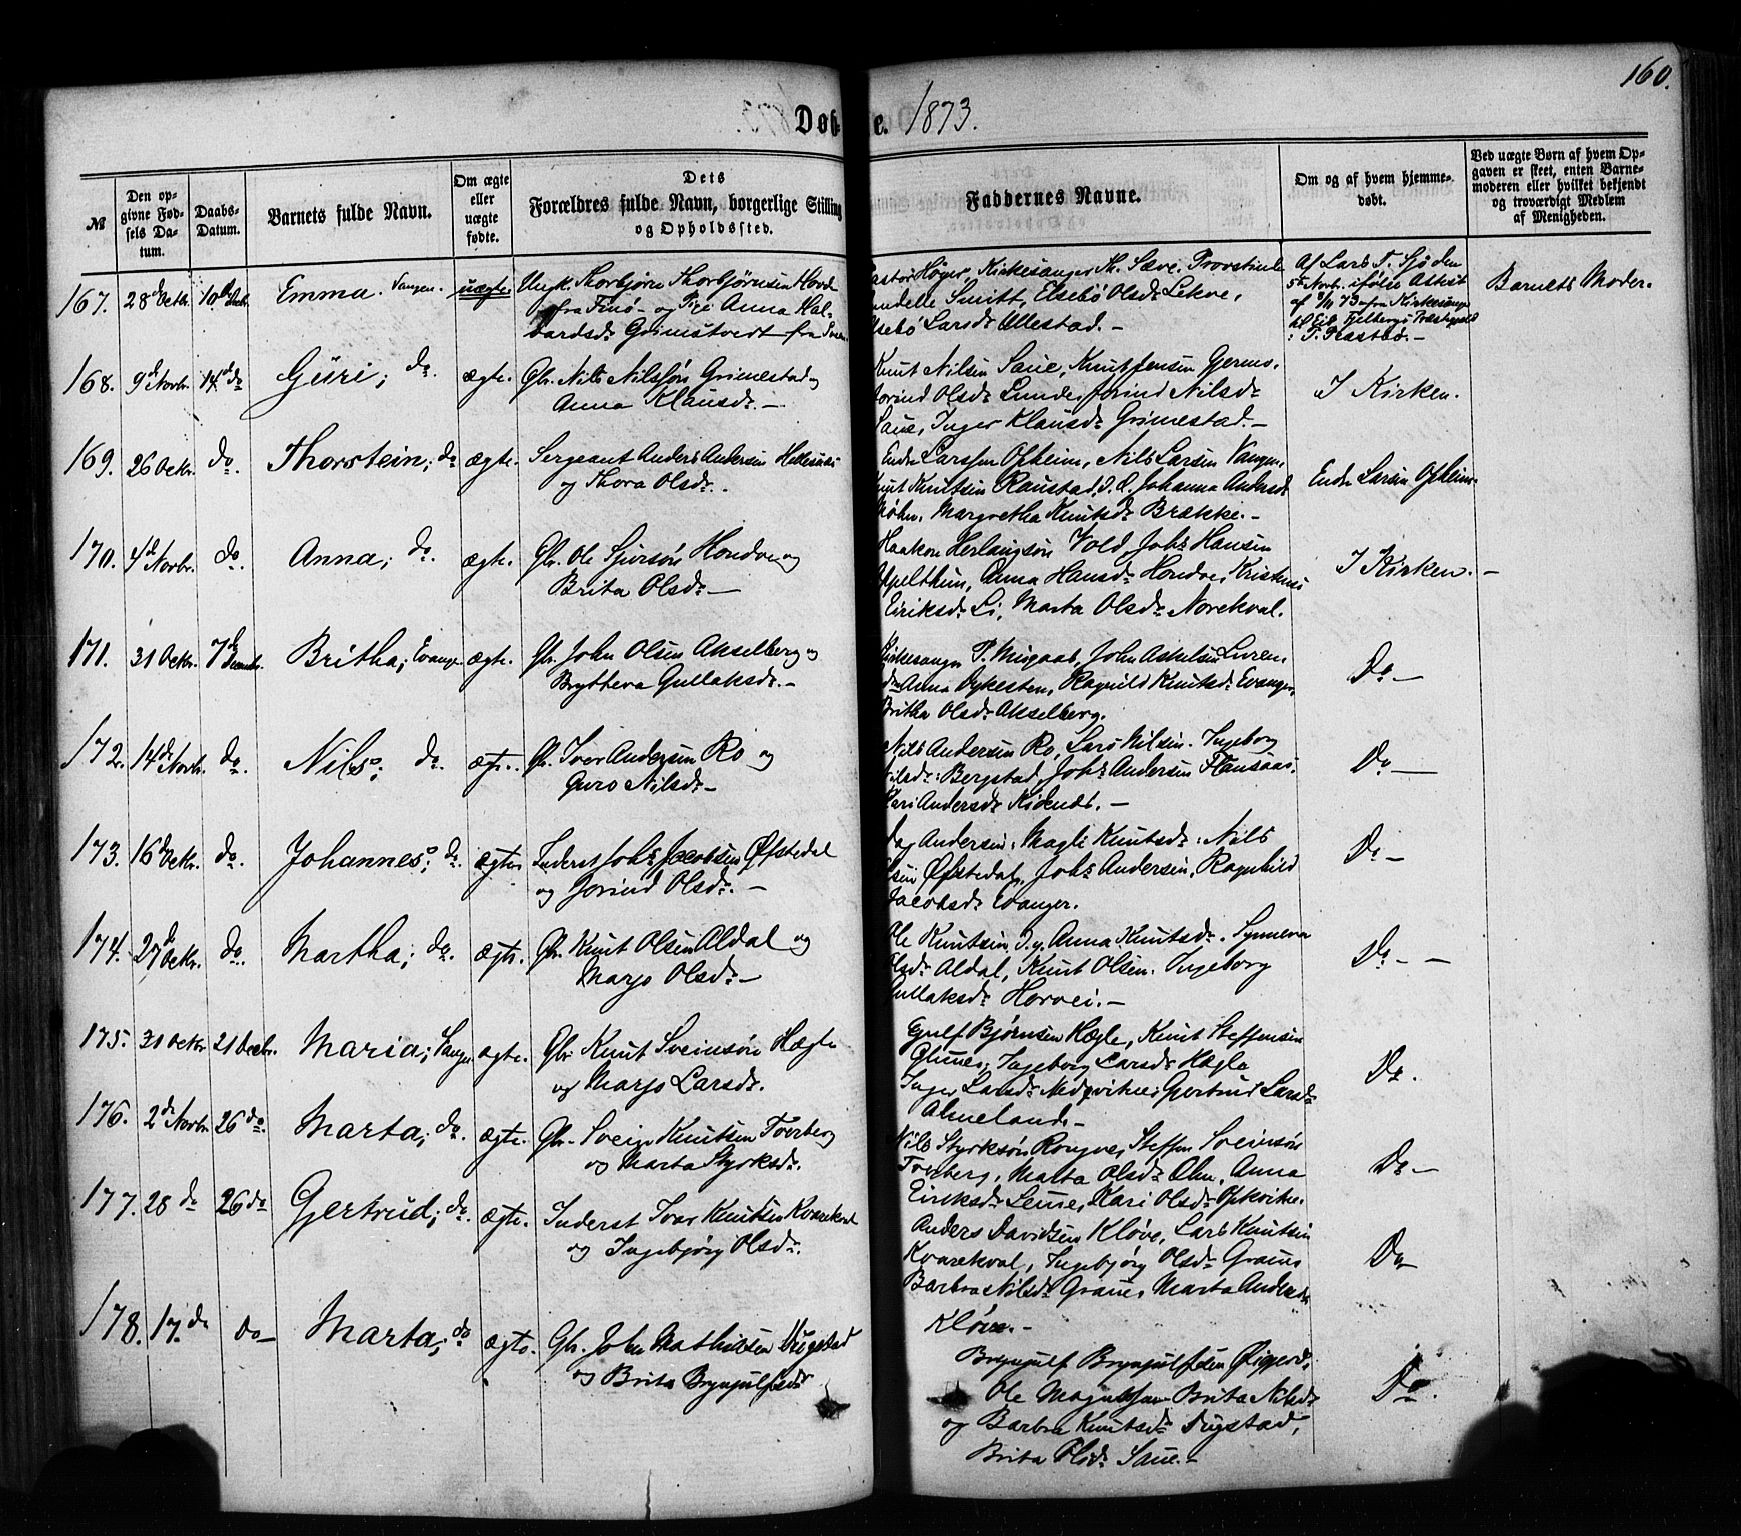 160.
Døb e. 1873.
№
Den opgivne Fødsels Datum.
Daabs-Datum.
Barnets fulde Navn.
Om ægte eller uægte fødte.
Dets Forældres fulde Navn, borgerlige Stilling og Opholdssted.
Faddernes Navne.
Om og af hvem hjemmedøbt.
Ved uægte Børn af hvem Opgaven er skeet, enten Barnemoderen eller hvilket bekjendt og troværdigt Medlem af Menigheden.
167. 28 de Octb. 10 Emma. Vangen. uægte. Ungk. Thorbjørn Thorbjørnsen
fra og Pige Anna Halvardsdr. Grimstvedt fra
Høyer, Kirkesanger Th. Sæve, Provstinde
Smitt, Elsebø Olsdr. Lekve,
Larsdr. Ullestad.—
Af Lars T. Sjø den
5te Novbr. ifølge Attest
af fra Kirkesanger
Barnets Moder.
168. 9 d Novbr. 14 d do Guri; do. ægte. Gbr. Nils Nilssøn Grimestad og
Anna Klausdr.—
Knut Nilsen Saue, Knut Jensen Gjerme,
Jorind Olsdr. Lunde, Jorind Nilsdr.
Saue, Inger Klausdr. Grimestad.—
I Kirken.
169. 26 Octbr. do. Thorstein; do ægte. Sergeant Anders Andersen
og Thora Olsdr.
Endre Larssen Opheim, Nils Larsen Vangen,
Knut Knutsen Raustad, Johanna Andersdr.
Margretha Knutsdr. Brække.—
Endre Larsen Opheim.
170. 4 d Novbr. do. Anna; do. ægte. Gbr. Ole Sjursøn Hondve og
Brita Olsdr.—
Haakon Herlaugsøn Vold, Johs. Hansen
Apelthun, Anna Hansdr. Hondve, Kristense
Eiriksdr. Li, Marta Olsdr. Norekval.
I Kirken.—
171. 31 Octbr. 7 de Decembr. Britha; Evanger ægte. Gbr. John Olsen Akselberg og
Brytteva Gullaksdr.—
Kirkesanger P. Misgaab, John Askelsen
Anna Dykesten, Ragnild Knutsdr. Evanger,
Britha Olsdr. Akselberg.
Do—
172. 14 de Novb. do. Nils; do. ægte. Gbr. Iver Andersen Ro og
Guro Nilsdr.—
Nils Andersen Ro, Lars Nilsen. Ingeborg
Nilsdr. Bergstad, Johs. Andersen
Kari Andersdr.—
Do—
173. 16 de Octbr. do. Johannes; do. ægte. Inderst Johs. Jacobsen Øfstedal
og Jorind Olsdr.—
Dag Andersen. Magli Knutsdr. Nils
Øfstedal, Johs. Andersen, Ragnhild
Jacobsdr. Evanger.
Do—
174. 27 de Octbr. do. Martha; do. ægte. Gbr. Knut Olsen Aldal og
Marjo Olsdr.—
Ole Knutsen Anna Knutsdr. Synneva
Olsdr. Aldal, Knut Olsen. Ingeborg
Gullaksdr. Horvei.—
Do——
175. 31 Octbr 21 Decbr. Maria; Vangen ægte. Gbr. Knut Sveinsøn Hægle
og Marjo Larsdr.
Bjørnsen Hægle, Knut Steffensen
Ingeborg Larsdr. Hægle
Inger Larsdr. Nedqvitne, Gjertrud Larsdr.
Almeland.—
Do.
176. 2 de Novbr. 26 do. Marta; do. ægte. Gbr. Svein Knutsen Tverberg
og Marta Styrksdr.
Nils Styrksøn Rongve, Steffen Sveinsøn
Tverberg, Malta Olsdr. Alm, Anna
Eiriksdr. Leiue, Kari Olsdr.
Do—
177. 28 do 26 do Gjertrud; do. ægte. Inderst Ivar Knutsen Kvarekval
og Ingebjørg Olsdr.
Anders Davidsen Kløve, Lars Knutsen
Kvarekval, Ingebjørg Olsdr. Graue
Barbra Nilsdr. Graue, Marta Andersdr.
Kløve.—
Do
178. 17. do do— Marta; do ægte. Gbr. John Mathiesen Dugstad
og Brita Brynjulfsdr
Brynjulf Brynjulfsen
Ole Magnussen Brita Nilsdr
og Barbra Knutsdr. Dugstad,
Brita Olsdr. Saue.—
Do.